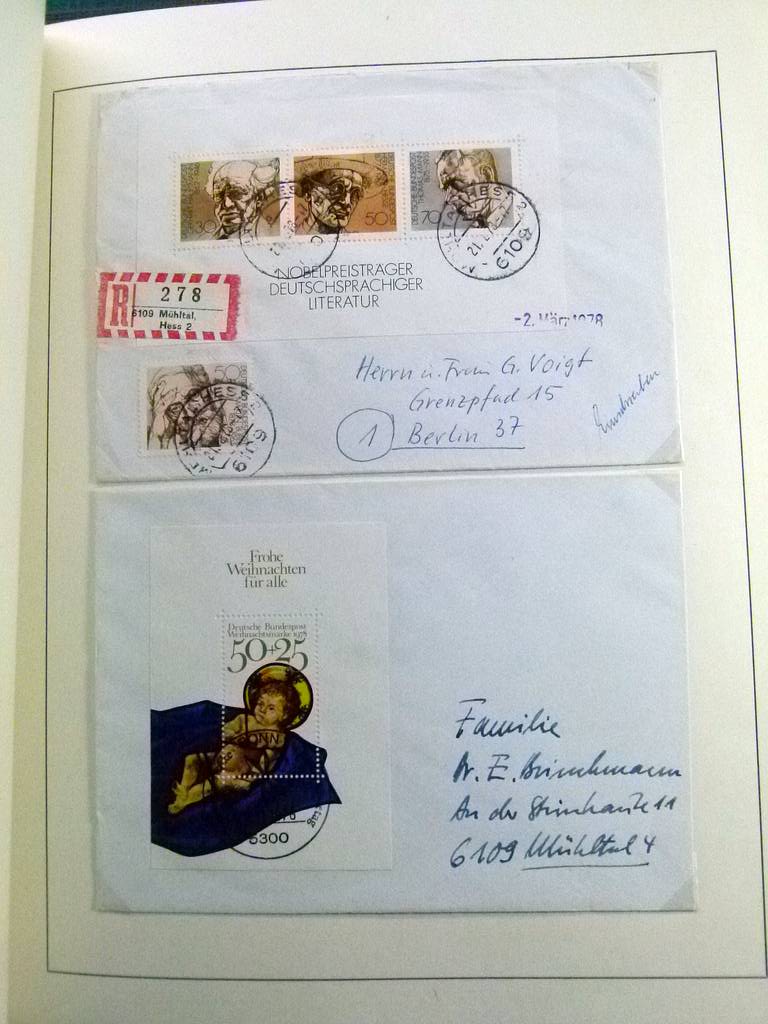 30
50
DEUTSCHE BUNDESPOST
THOMAS MANN
70
6109
NOBELPREISTRÄGER
DEUTSCHSPRACHIGER
LITERATUR
R 278
6109 Mühltal,
Hess 2
-2. März 1978
50
Herrn u. Frau G. Voigt
Grenzpfad 15
1 Berlin 37
Einschreiben
Frohe
Weihnachten
für alle
Deutsche Bundespost
Weihnachtsmarke 1978
50+25
BONN
5300
Familie
Dr. E. Brinckmann
An der 11
6109 Mühltal 4